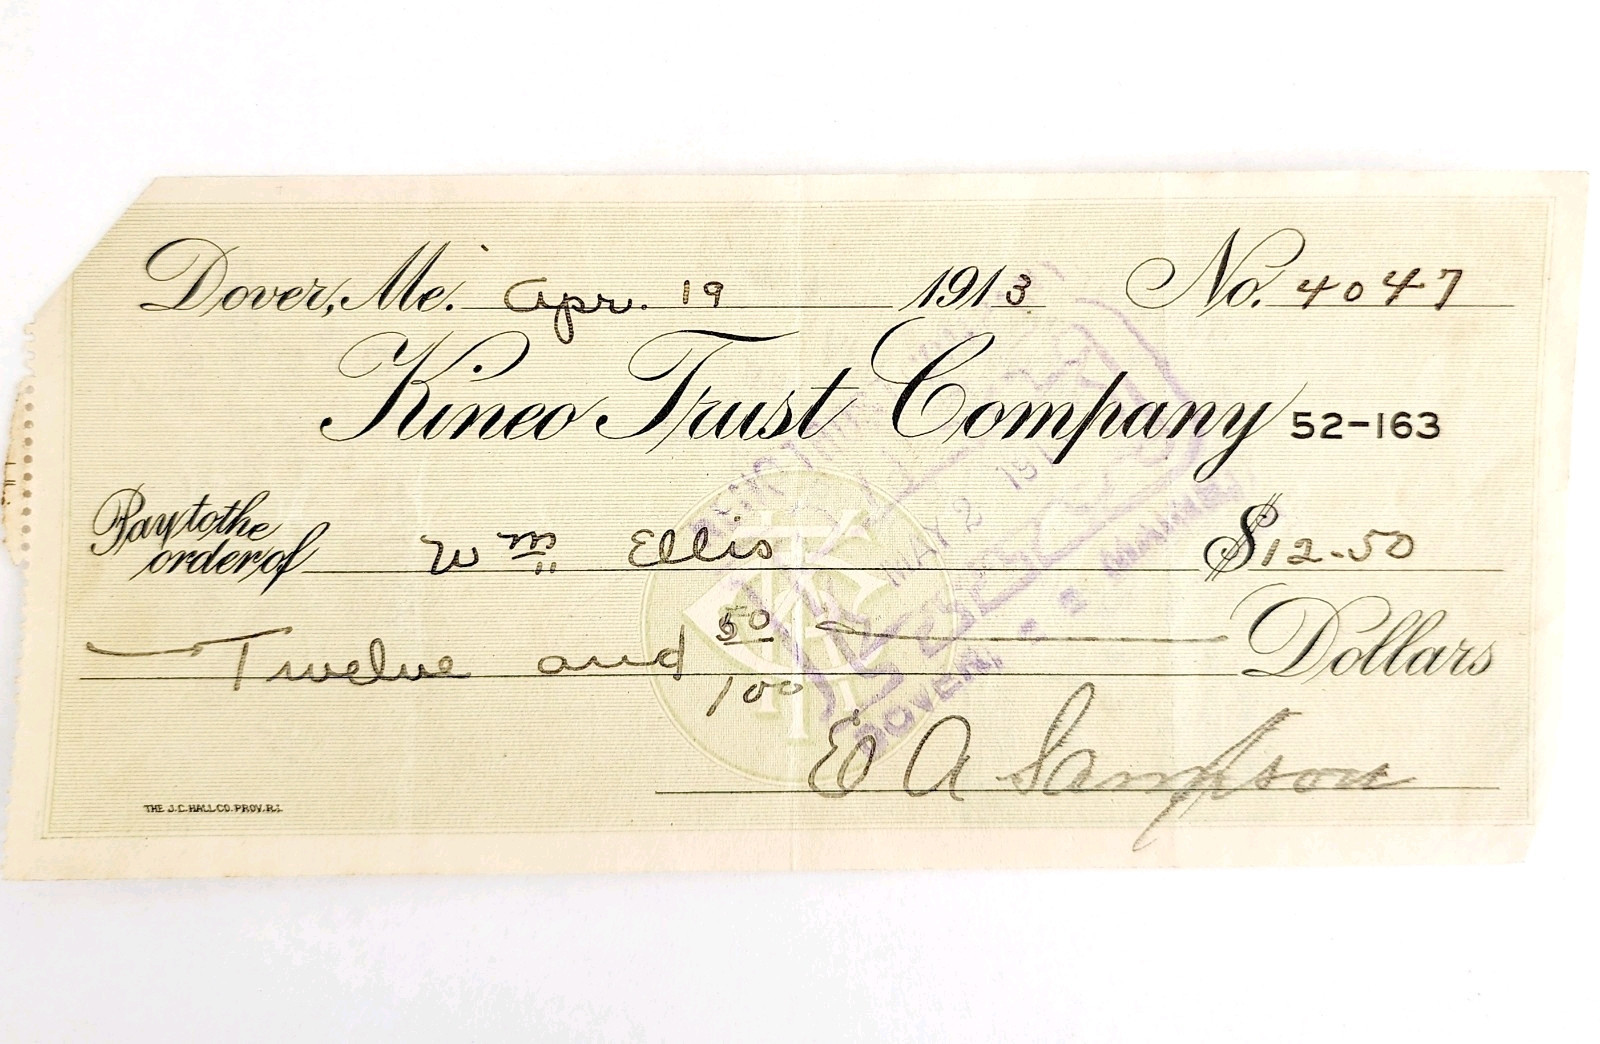 Dover, Me. Apr. 19 1913 No. 4047
Kineo Trust Company 52-163
Pay to the
order of Wm Ellis $12.50
Twelve and 50/100 Dollars
E A Sampson
THE J.C. HALL CO. PROV. R.I.
MAY 2 191
DOVER,